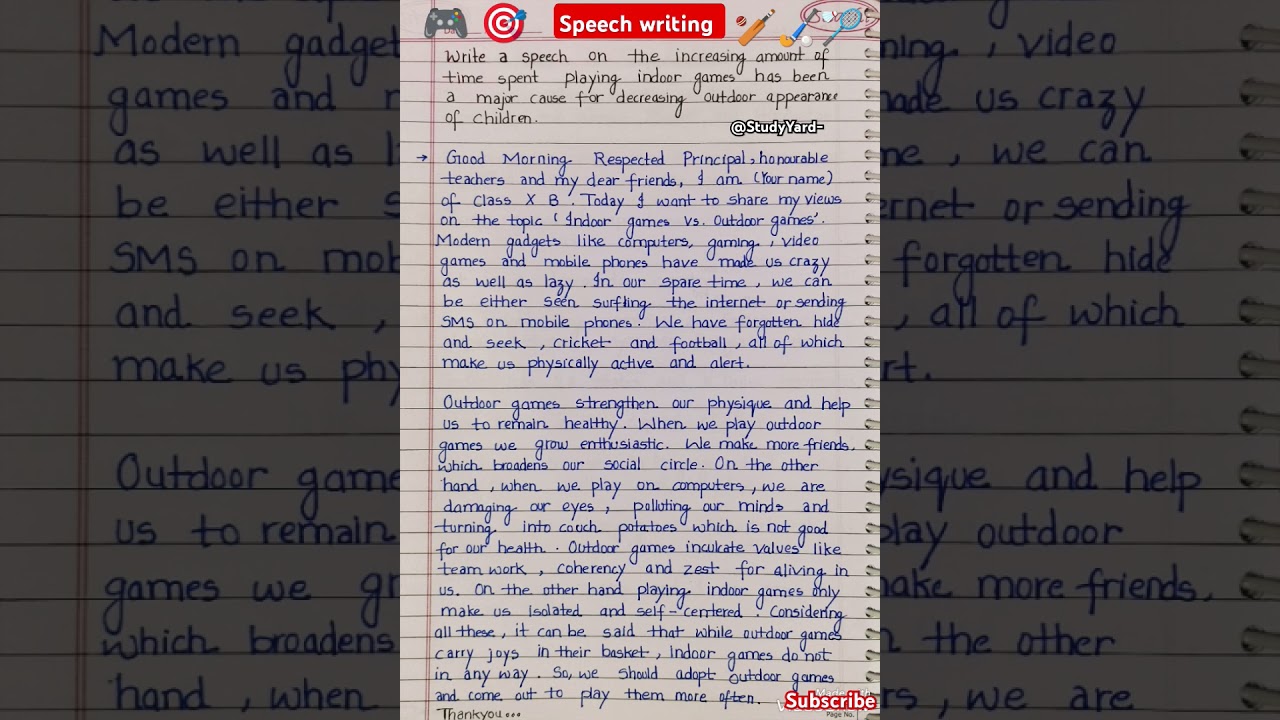 Speech writing
Write a speech on the increasing amount of
time spent playing indoor games has been
a major cause for decreasing outdoor appearance
of children.
@StudyYard-
→ Good Morning Respected Principal, honourable
teachers and my dear friends, I am (Your name)
of class X B. Today I want to share my views
on the topic 'Indoor games vs. Outdoor games'.
Modern gadgets like computers, gaming, video
games and mobile phones have made us crazy
as well as lazy. In our spare time, we can
be either seen surfling the internet or sending
SMS on mobile phones. We have forgotten hide
and seek, cricket and football, all of which
make us physically active and alert.
Outdoor games strengthen our physique and help
us to remain healthy. When we play outdoor
games we grow enthusiastic. We make more friends,
which broadens our social circle. On the other
hand, when we play on computers, we are
damaging our eyes, polluting our minds and
turning into couch potatoes which is not good
for our health. Outdoor games inculcate values like
team work, coherency and zest for aliving in
us. On the other hand playing indoor games only
make us isolated and self-centered. Considering
all these, it can be said that while outdoor games
carry joys in their basket, Indoor games do not
in any way. So, we should adopt outdoor games
and come out to play them more often.
Subscribe
Page No.
Thankyou...